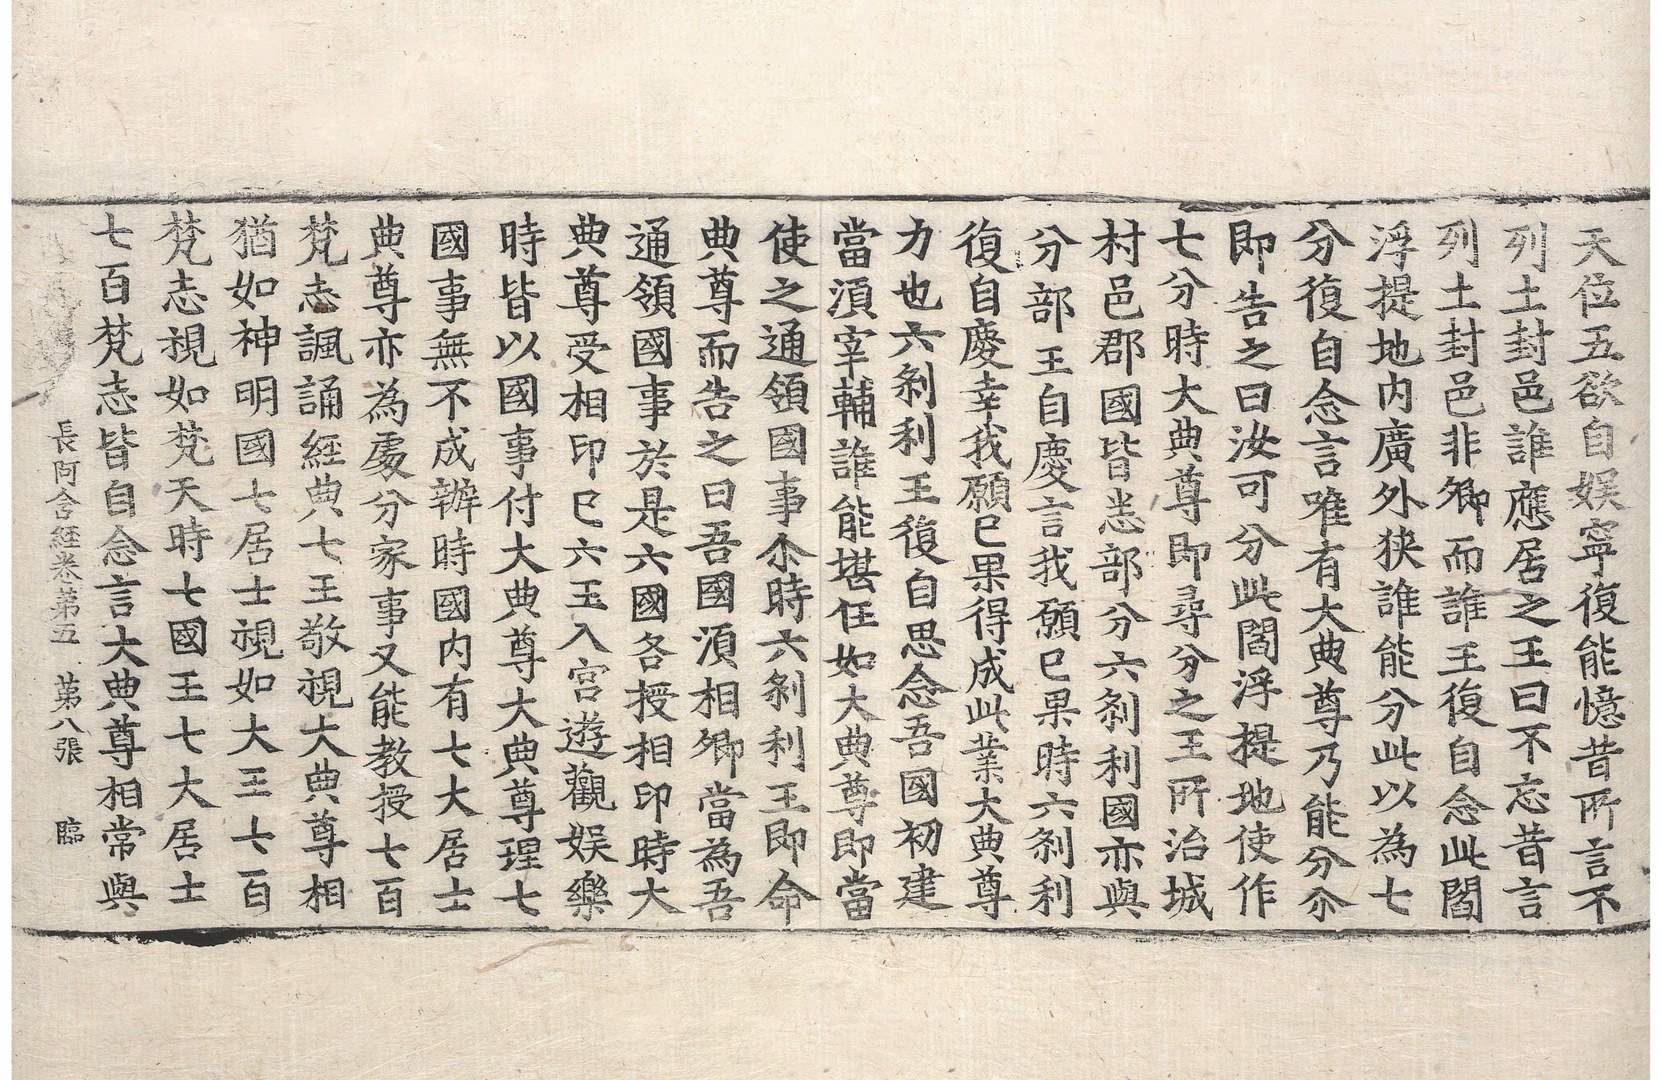 天位五欲自娛寧復能憶昔所言不
列土封邑誰應居之王曰不忘昔言
列土封邑非卿而誰王復自念此閻
浮提地内廣外狹誰能分此以為七
分復自念言唯有大典尊乃能分尒
即告之曰汝可分此閻浮提地使作
七分時大典尊即尋分之王所治城
村邑郡國皆悉部分六剎利國亦與
分部王自慶言我願已果時六剎利
復自慶幸我願已果得成此業大典尊
力也六剎利王復自思念吾國初建
當湏宰輔誰能堪任如大典尊即當
使之通領國事尒時六剎利王即命
典尊而告之曰吾國湏相卿當為吾
通領國事於是六國各授相印時大
典尊受相印已六王入宮遊觀娛樂
時皆以國事付大典尊大典尊理七
國事無不成辦時國内有七大居士
典尊亦為處分家事又能教授七百
梵志諷誦經典七王敬視大典尊相
猶如神明國七居士視如大王七百
梵志視如梵天時七國王七大居士
七百梵志皆自念言大典尊相常與
長阿含經卷第五 第八張 臨